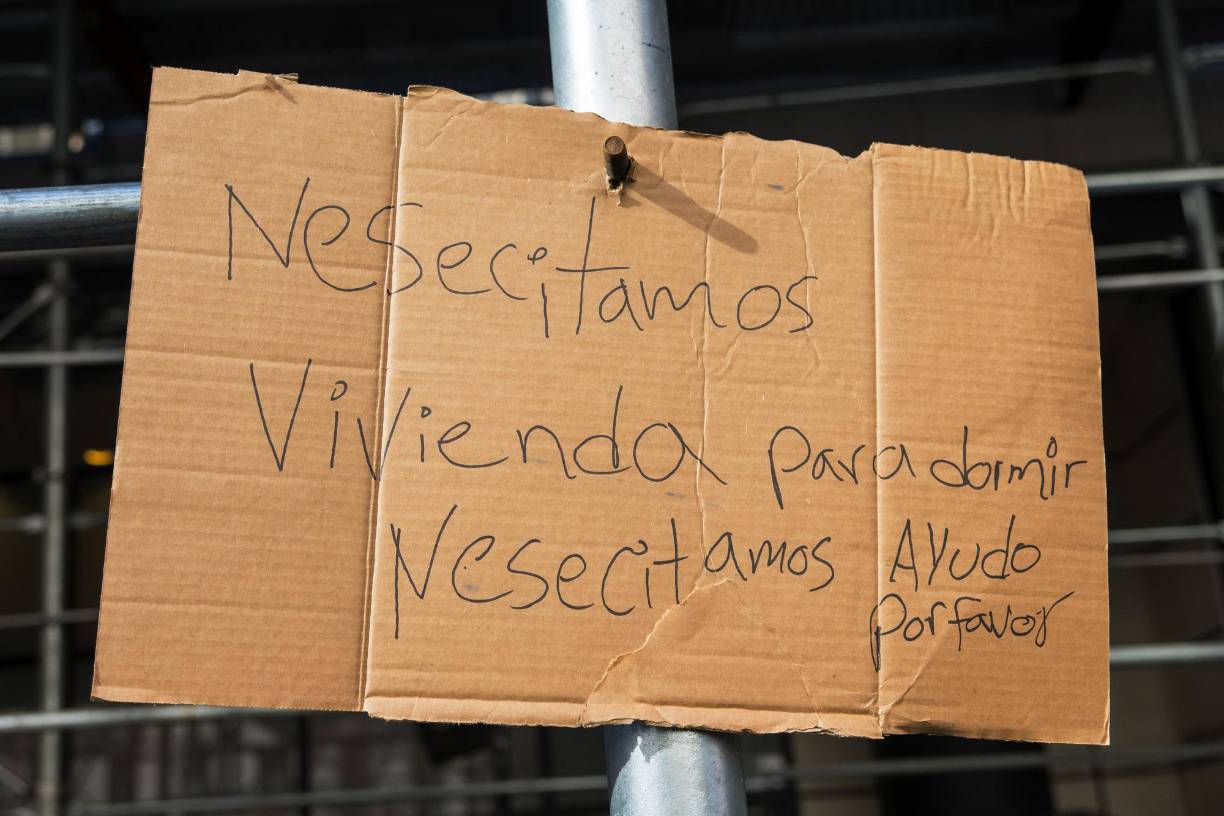 Nesecitamos
Vivienda para dormir
Nesecitamos Ayudo
por favor